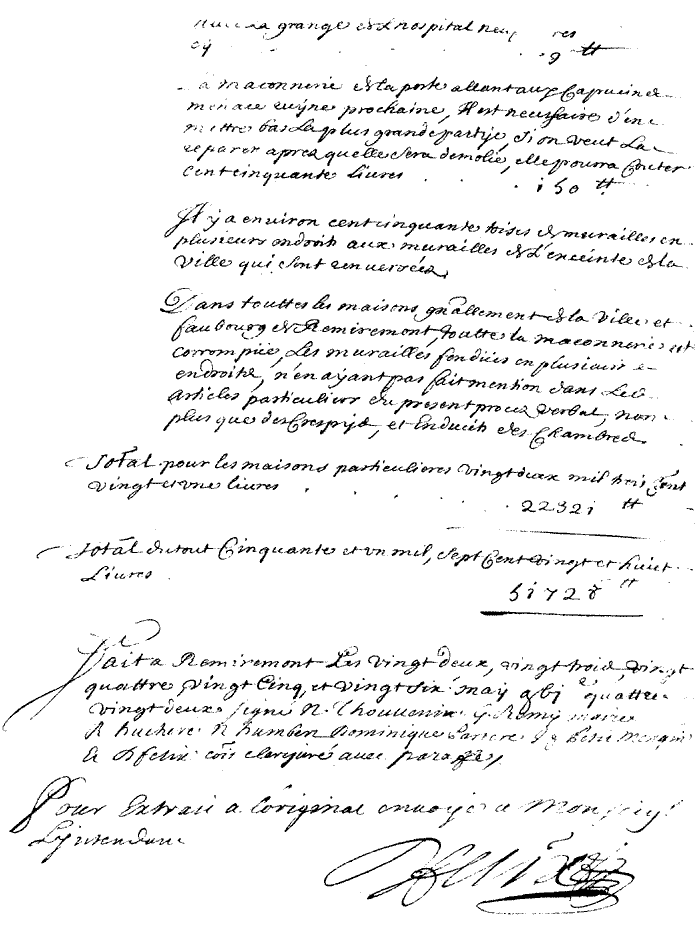 la grange de l'hospital
cy 9 tt
La maconnerie de la porte allant aux Capucins
menace ruyne prochaine, Il est necessaire d'en
mettre bas la plus grande partye, si on veut La
reparer apres quelle sera demolie, elle pourra Couter
cent cinquante Liures . . . 150 tt
Il y a environ cent cinquante toises de murailles en
plusieurs endroit aux murailles de l'enceinte de la
Ville qui sont renversées
Dans touttes les maisons gñallement de la Ville et
faubourg de Remiremont, toutte la maconnerie est
corrompüe, Les murailles fendües en plusieurs
endroits, n'en ayant pas fait mention dans Les
articles particuliers du present proces verbal, non
plus que des Crespys, et Enduits des Chambres
Total pour les maisons particulieres vingt deux mil trois Cent
vingt et vne liures . . . . 22321 tt
Total du tout Cinquante et vn mil, sept Cent vingt et huit
Liures . 51728 tt
Fait a Remiremont Les vingt deux, vingt trois, vingt
quattre, vingt Cinq, et vingt six may quattre
vingt deux signé N. Thouvenin G. Remy maire
N humbert Dominique
felix clerjuré avec paraffes,
Pour Extrait a L'original envoye a Monseig.r
L'jntendant